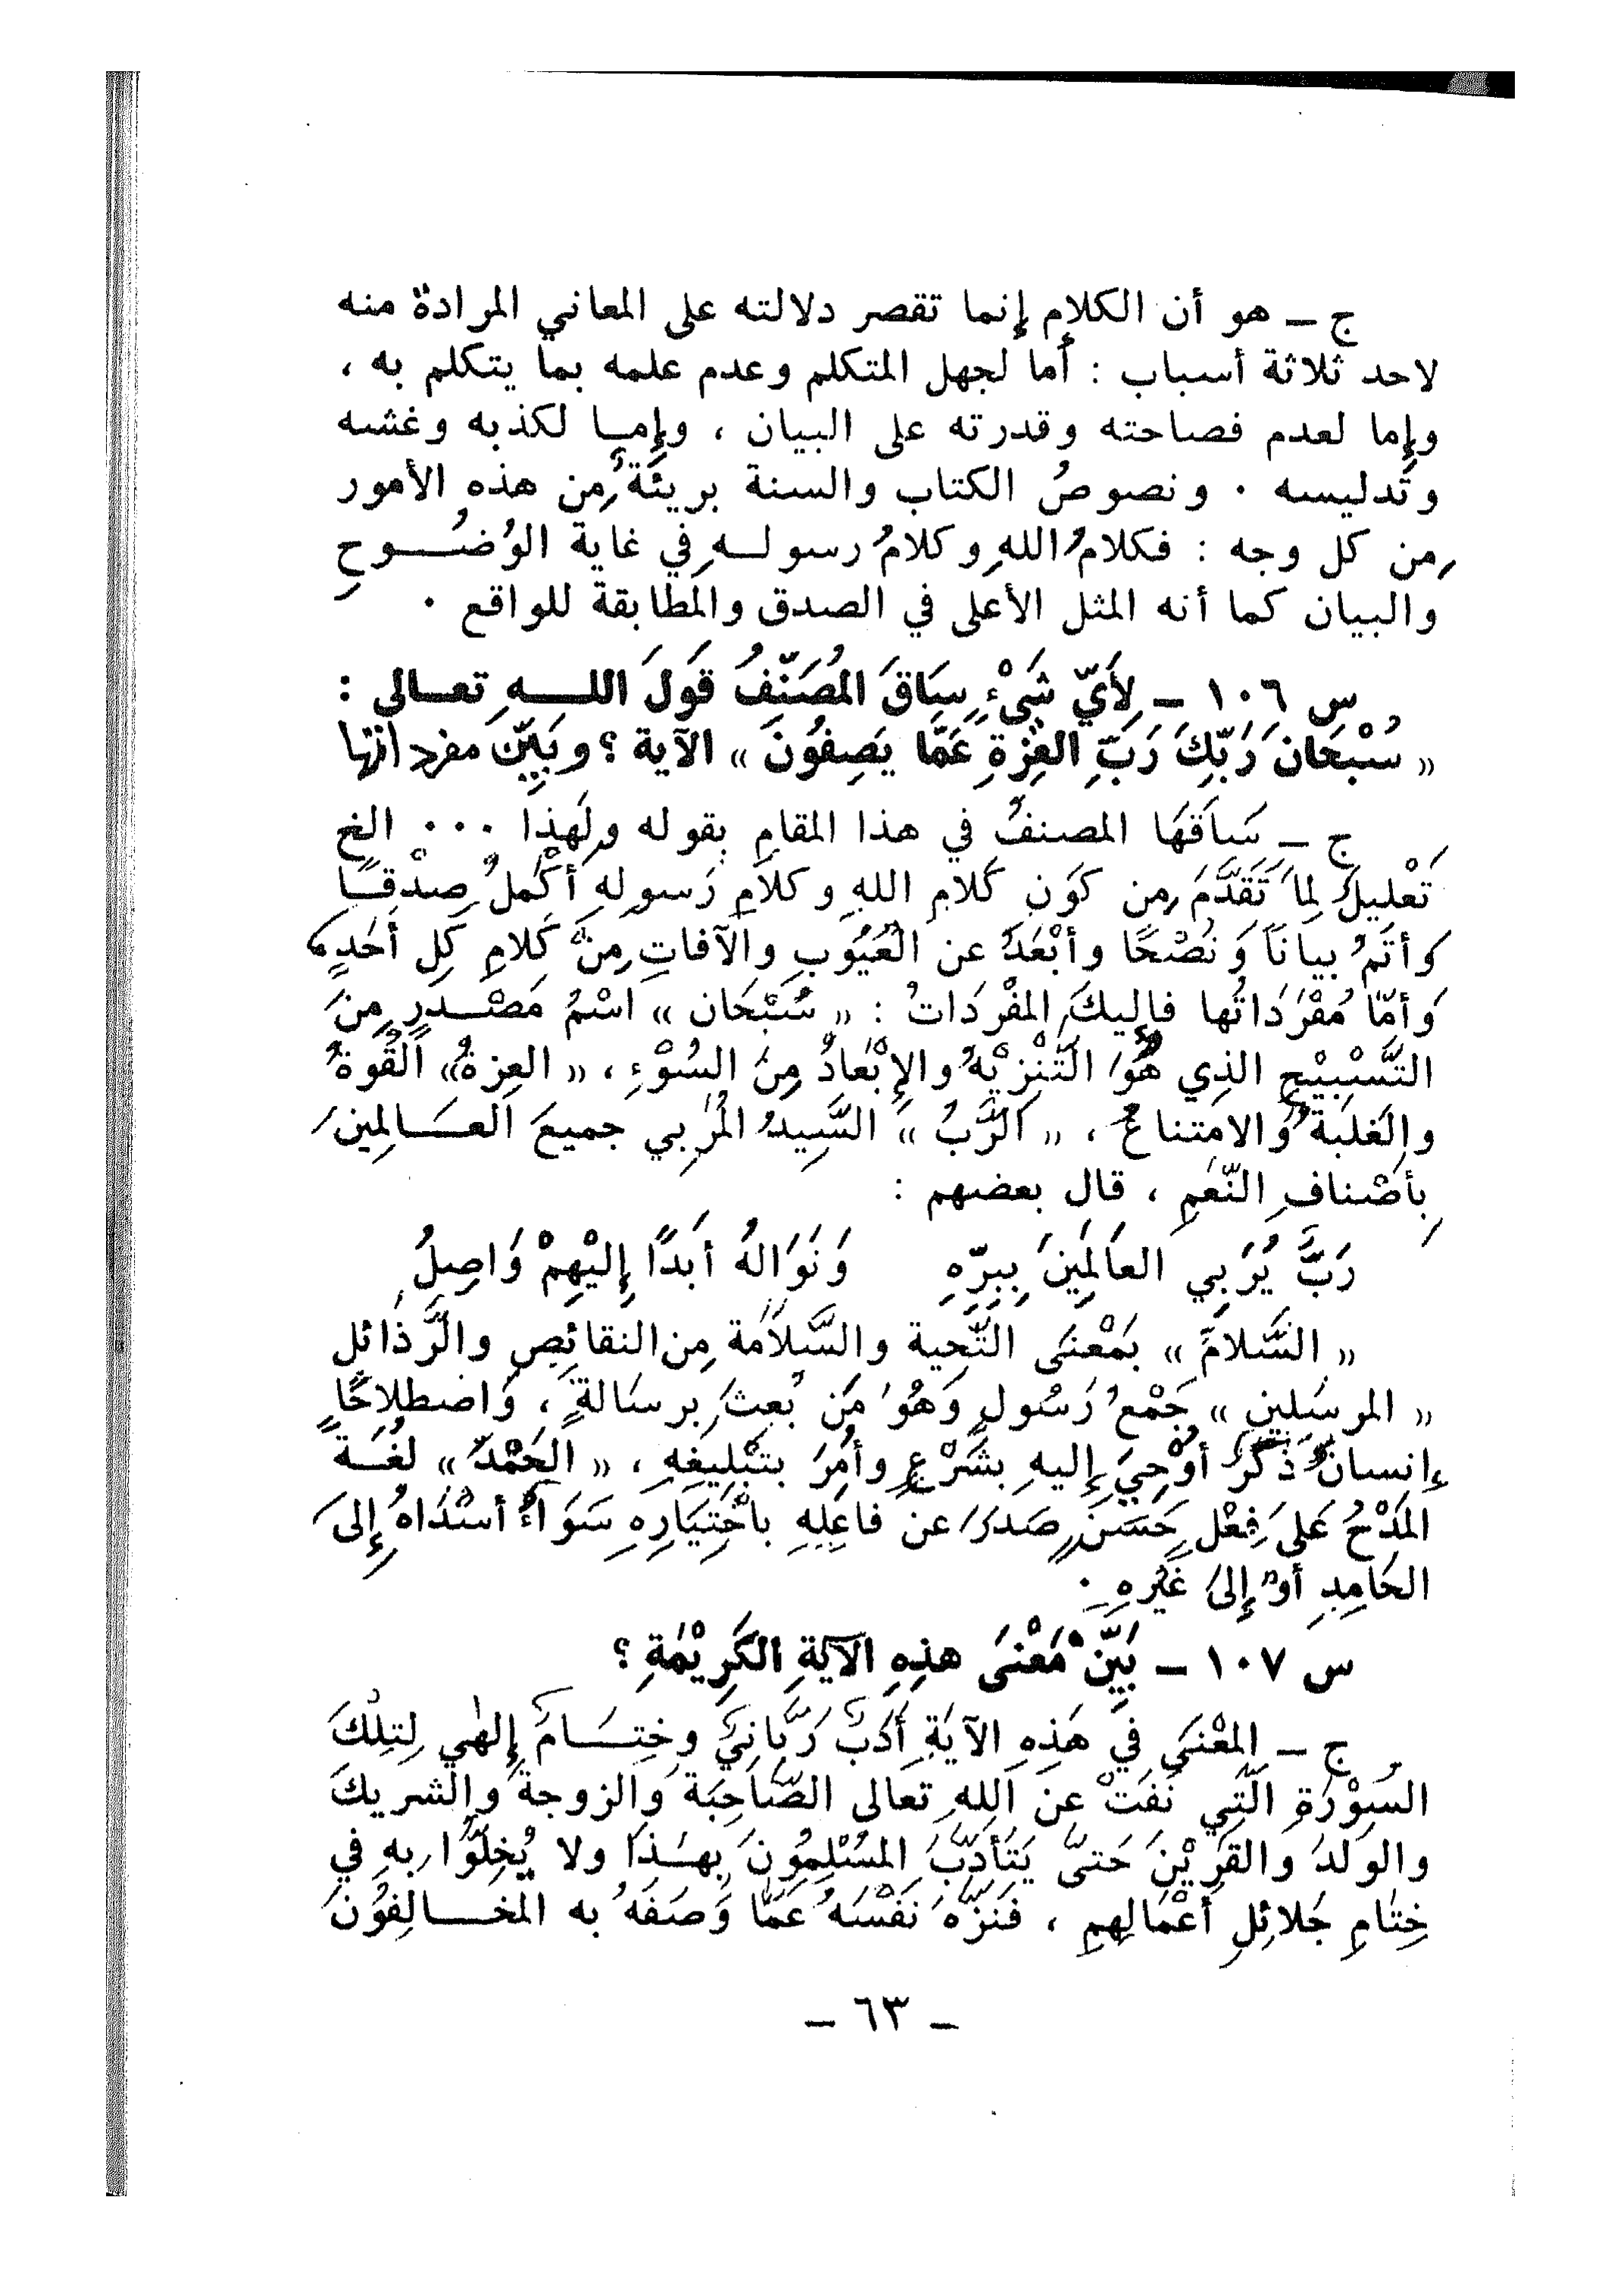 ج ــ هو أن الكلام إنما تقصر دلالته على المعاني المرادة منه
لاحد ثلاثة أسباب : أما لجهل المتكلم وعدم علمه بما يتكلم به ،
وإما لعدم فصاحته وقدرته على البيان ، وإمــا لكذبه وغشه
وتدليسه . ونصوصُ الكتاب والسنة بريئةٌ مِن هذه الأمور
مِن كل وجه : فكلامُ اللهِ وكلامُ رسولــهِ في غاية الوُضُــــوحِ
والبيان كما أنه المثل الأعلى في الصدق والمطابقة للواقع .
س ١٠٦ ــ لِأَيِّ شَيْءٍ سَاقَ المُصَنِّفُ قَولَ اللـــهِ تعــالى :
« سُبْحَانَ رَبِّكَ رَبِّ العِزَّةِ عَمَّا يَصِفُونَ » الآية ؟ وبَيِّن مفرداتها
ج ــ سَاقَهَا المصنفُ في هذا المقامِ بقوله ولِهَذا ... الخ
تَعْلِيلٌ لِمَا تَقَدَّمَ مِن كَونِ كَلامِ اللهِ وكلامِ رَسولِهِ أَكْمَلُ صِدْقــًا
وأتَمُّ بياناً وَنُصْحًا وأبْعَدُ عن العُيُوبِ والآفاتِ مِنْ كَلامِ كُلِ أَحَدٍ
وَأمّا مُفْرَدَاتُها فإليكَ المفْرَداتُ : « سُبْحَان » اسْمُ مَصْــدَرٍ مِنَ
التَّسْبِيْحِ الذِي هُوَ التَّنْزِيْهُ والإِبْعَادُ مِنَ السُوْءِ ، « العِزةُ» القُوةُ
والغَلَبَةُ والامتناعُ ، « الرَّبُ » السَّيِدُ المُرَبِي جميعَ العَــالمِينَ
بِأصْنافِ النِّعَمِ ، قال بعضهم :
رَبٌّ يُرَبِي العَالمِينَ بِبِرِّهِ وَنَوَالهُ أبَدًا إِليْهِمْ وَاصِلُ
« السَّلامُ » بمَعْنَى التَّحِية والسَّلاَمة مِن النقائِصِ والرَّذائِلِ
« المرسَلِين » جَمْعُ رَسُولٍ وَهُوَ مَن بُعِثَ بِرسَالةٍ ، وَاصْطلاحًا
إِنسانٌ ذَكَرٌ أُوْحِيَ إِليهِ بِشَرْعٍ وأُمِرَ بتَبْلِيغِهِ ، « الحَمْدُ » لغُــةً
المَدْحُ عَلَى فِعْلٍ حَسَنٍ صَدَرَ عن فاعِلِهِ باخْتِيَارِهِ سَوَاءٌ أسْدَاهُ إِلىَ
الحَامِدِ أوْ إِلىَ غَيْرِهِ .
س ١٠٧ ــ بَيِّنْ مَعْنَى هذِهِ الآيةِ الكَرِيْمَةِ ؟
ج ــ المعْنَى في هَذِهِ الآيَةِ أَدَبٌ رَبَّانِيٌ وخِتَــامٌ إِلهٰي لِتِلكَ
السُوْرَةِ الَّتِي نَفَتْ عَنِ اللهِ تعالى الصَّاحِبَةَ وَالزوجةَ وَالشريكَ
والوَلَدَ وَالقَرِيْنَ حَتىَّ يَتَأدَّبَ المُسْلِمُونَ بِهــذَا ولا يُخِلُّوا بِهِ في
خِتَامِ جَلائِلِ أعْمَالِهمِ ، فَنَزَّهَ نَفْسَهُ عَمَّا وَصَفَهُ به المخــالِفُوْنَ
ــ ٦٣ ــ